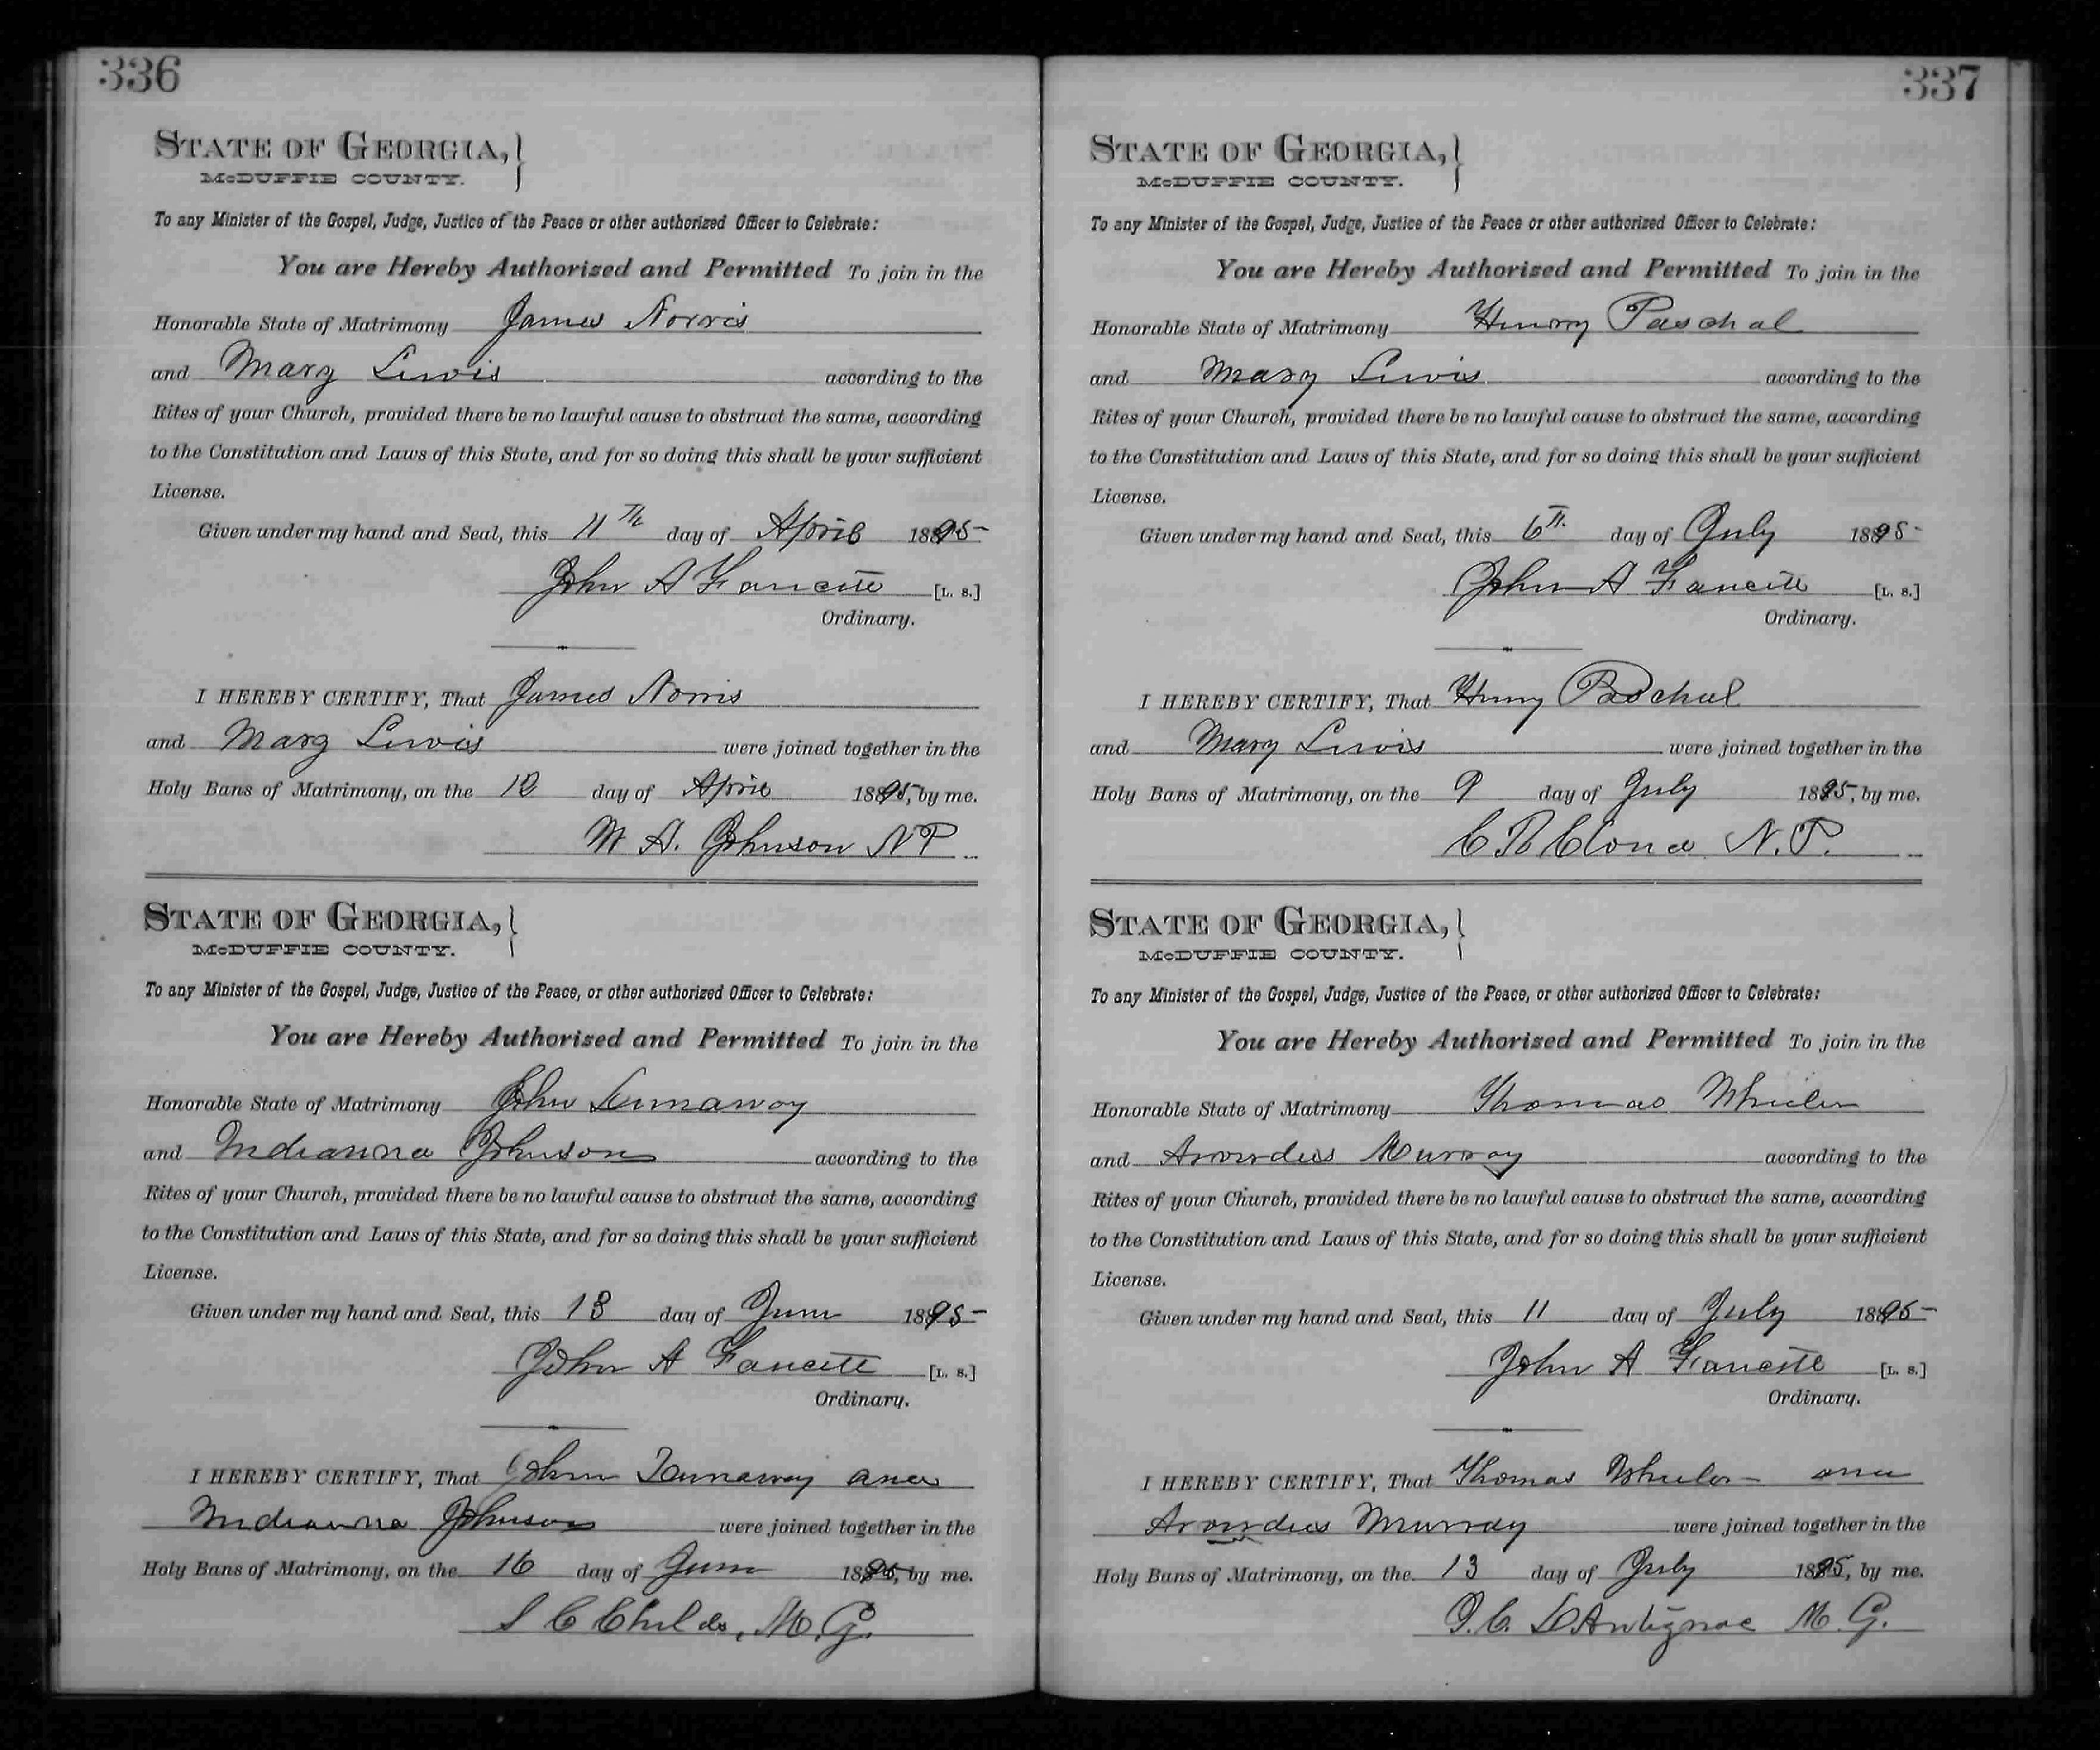 336
STATE OF GEORGIA,
McDUFFIE COUNTY.
To any Minister of the Gospel, Judge, Justice of the Peace or other authorized Officer to Celebrate:
You are Hereby Authorized and Permitted To join in the
Honorable State of Matrimony James Norris
and Mary Lewis according to the
Rites of your Church, provided there be no lawful cause to obstruct the same, according
to the Constitution and Laws of this State, and for so doing this shall be your sufficient
License.
Given under my hand and Seal, this 11th day of April 1895
John A [L. S.]
Ordinary.
I HEREBY CERTIFY, That James Norris
and Mary Lewis were joined together in the
Holy Bans of Matrimony, on the day of April 1895, by me.
W A. Johnson N P
STATE OF GEORGIA,
McDUFFIE COUNTY.
To any Minister of the Gospel, Judge, Justice of the Peace, or other authorized Officer to Celebrate:
You are Hereby Authorized and Permitted To join in the
Honorable State of Matrimony John
and Indianna Johnson according to the
Rites of your Church, provided there be no lawful cause to obstruct the same, according
to the Constitution and Laws of this State, and for so doing this shall be your sufficient
License.
Given under my hand and Seal, this 13 day of June 1895
John A [L. S.]
Ordinary.
I HEREBY CERTIFY, That John and
Indianna Johnson were joined together in the
Holy Bans of Matrimony, on the 16 day of June 1895, by me.
S C Childs, M. G.
337
STATE OF GEORGIA,
McDUFFIE COUNTY.
To any Minister of the Gospel, Judge, Justice of the Peace or other authorized Officer to Celebrate:
You are Hereby Authorized and Permitted To join in the
Honorable State of Matrimony Henry Paschal
and Mary Lewis according to the
Rites of your Church, provided there be no lawful cause to obstruct the same, according
to the Constitution and Laws of this State, and for so doing this shall be your sufficient
License.
Given under my hand and Seal, this 6th day of July 1895
John A [L. S.]
Ordinary.
I HEREBY CERTIFY, That Henry Paschal
and Mary Lewis were joined together in the
Holy Bans of Matrimony, on the 9 day of July 1895, by me.
N. P.
STATE OF GEORGIA,
McDUFFIE COUNTY.
To any Minister of the Gospel, Judge, Justice of the Peace, or other authorized Officer to Celebrate:
You are Hereby Authorized and Permitted To join in the
Honorable State of Matrimony Thomas Wheeler
and Murray according to the
Rites of your Church, provided there be no lawful cause to obstruct the same, according
to the Constitution and Laws of this State, and for so doing this shall be your sufficient
License.
Given under my hand and Seal, this 11 day of July 1895
John A [L. S.]
Ordinary.
I HEREBY CERTIFY, That Thomas Wheeler and
Murray were joined together in the
Holy Bans of Matrimony, on the 13 day of July 1895, by me.
DAntignac M. G.